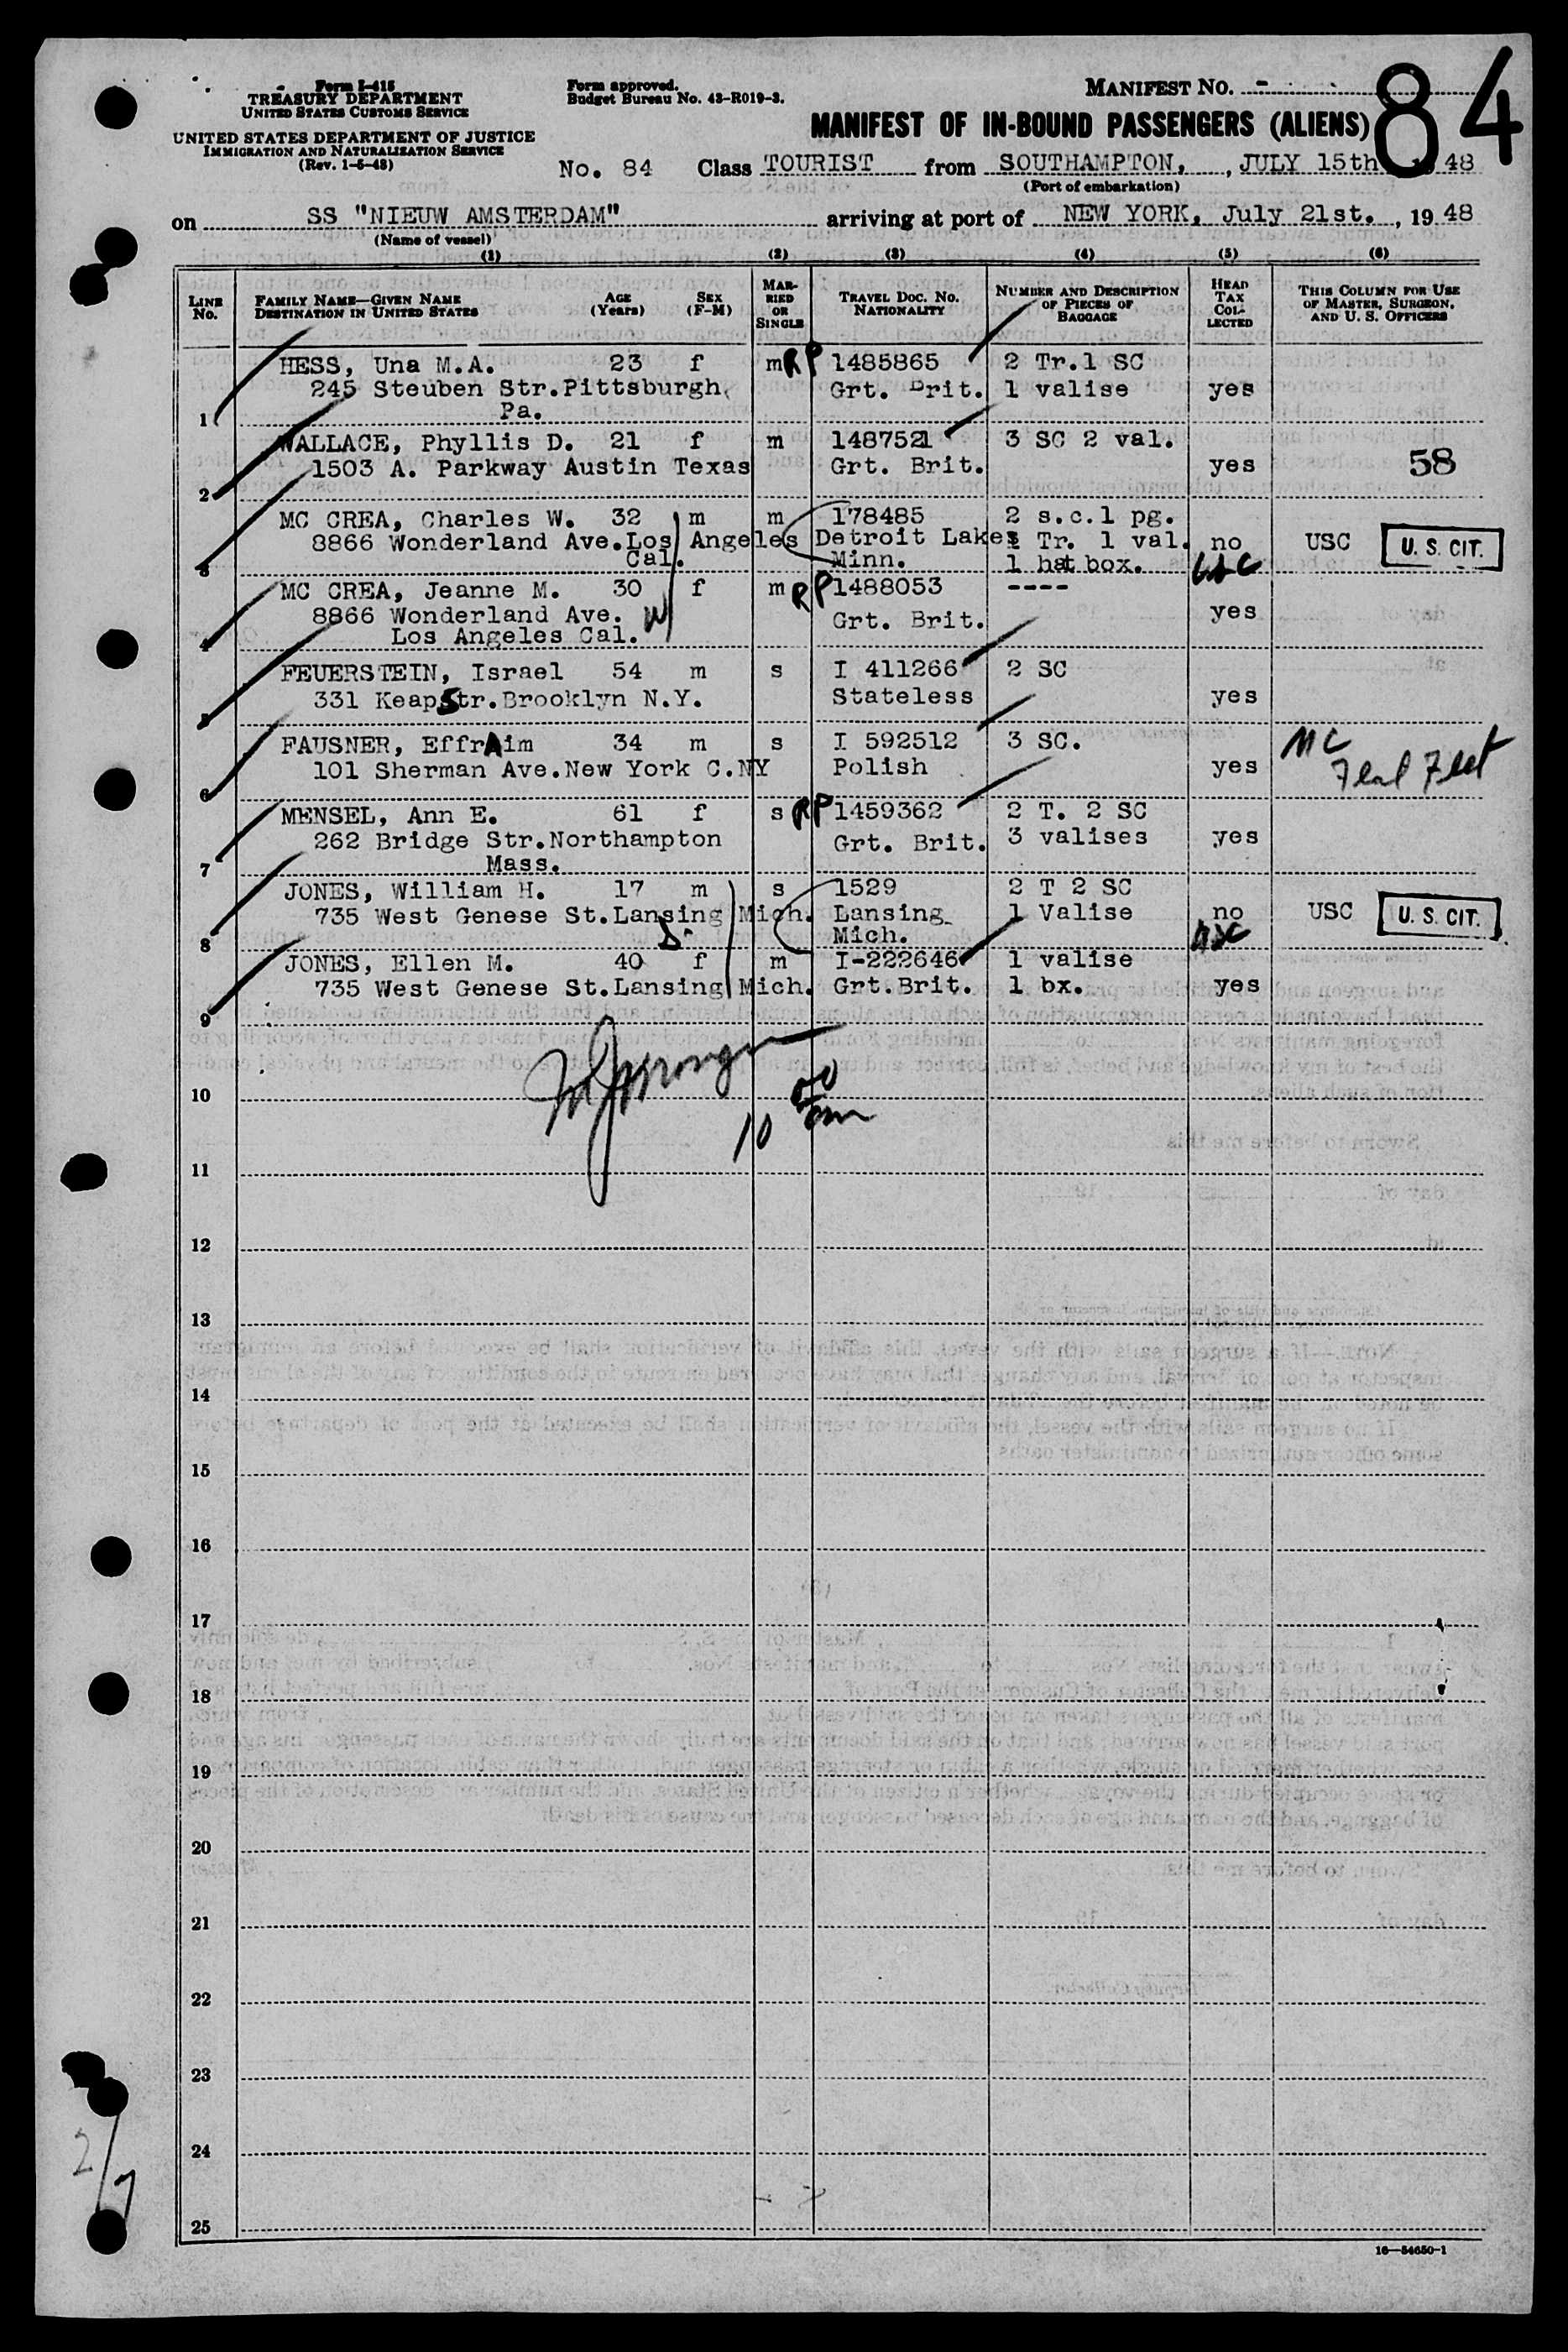 Form I-415
TREASURY DEPARTMENT
UNITED STATES CUSTOMS SERVICE
UNITED STATES DEPARTMENT OF JUSTICE
IMMIGRATION AND NATURALIZATION SERVICE
(Rev. 1-6-48)
Form approved.
Budget Bureau No. 43-R019-3.
MANIFEST NO. -
84
MANIFEST OF IN-BOUND PASSENGERS (ALIENS)
No. 84 Class TOURIST from SOUTHAMPTON, , JULY 15th 48
(Port of embarkation)
on SS "NIEUW AMSTERDAM" arriving at port of NEW YORK, July 21st. , 19 48
(Name of vessel)
(1) (2) (3) (4) (5) (6)
LINE No. FAMILY NAME—GIVEN NAME DESTINATION IN UNITED STATES AGE (Years) SEX (F-M) MARRIED OR SINGLE TRAVEL DOC. NO. NATIONALITY NUMBER AND DESCRIPTION OF PIECES OF BAGGAGE HEAD TAX COLLECTED THIS COLUMN FOR USE OF MASTER, SURGEON, AND U. S. OFFICERS
HESS, Una M.A. 23 f m RP 1485865 2 Tr.1 SC
245 Steuben Str.Pittsburgh, Grt. Brit. 1 valise yes
1 Pa.
WALLACE, Phyllis D. 21 f m 1487521 3 SC 2 val.
1503 A. Parkway Austin Texas Grt. Brit. yes 58
2
MC CREA, Charles W. 32 m m 178485 2 s.c.1 pg.
8866 Wonderland Ave.Los Angeles Detroit Lakes 1 Tr. 1 val. no USC U. S. CIT.
3 Cal. Minn. 1 hat box. USC
MC CREA, Jeanne M. 30 f m RP 1488053 ----
8866 Wonderland Ave. W Grt. Brit. yes
4 Los Angeles Cal.
FEUERSTEIN, Israel 54 m s I 411266 2 SC
331 Keap Str.Brooklyn N.Y. Stateless yes
5
FAUSNER, EffrAim 34 m s I 592512 3 SC.
101 Sherman Ave.New York C.NY Polish yes MC
6 Flat Feet
MENSEL, Ann E. 61 f s RP 1459362 2 T. 2 SC
262 Bridge Str.Northampton Grt. Brit. 3 valises yes
7 Mass.
JONES, William H. 17 m s 1529 2 T 2 SC
735 West Genese St.Lansing Mich. Lansing 1 Valise no USC U. S. CIT.
8 Mich. USC
JONES, Ellen M. 40 f m I-222646 1 valise
735 West Genese St.Lansing Mich. Grt.Brit. 1 bx. yes
9
10
10 00 am
11
12
13
14
15
16
17
18
19
20
21
22
23
24
25
2/7
16—54650-1